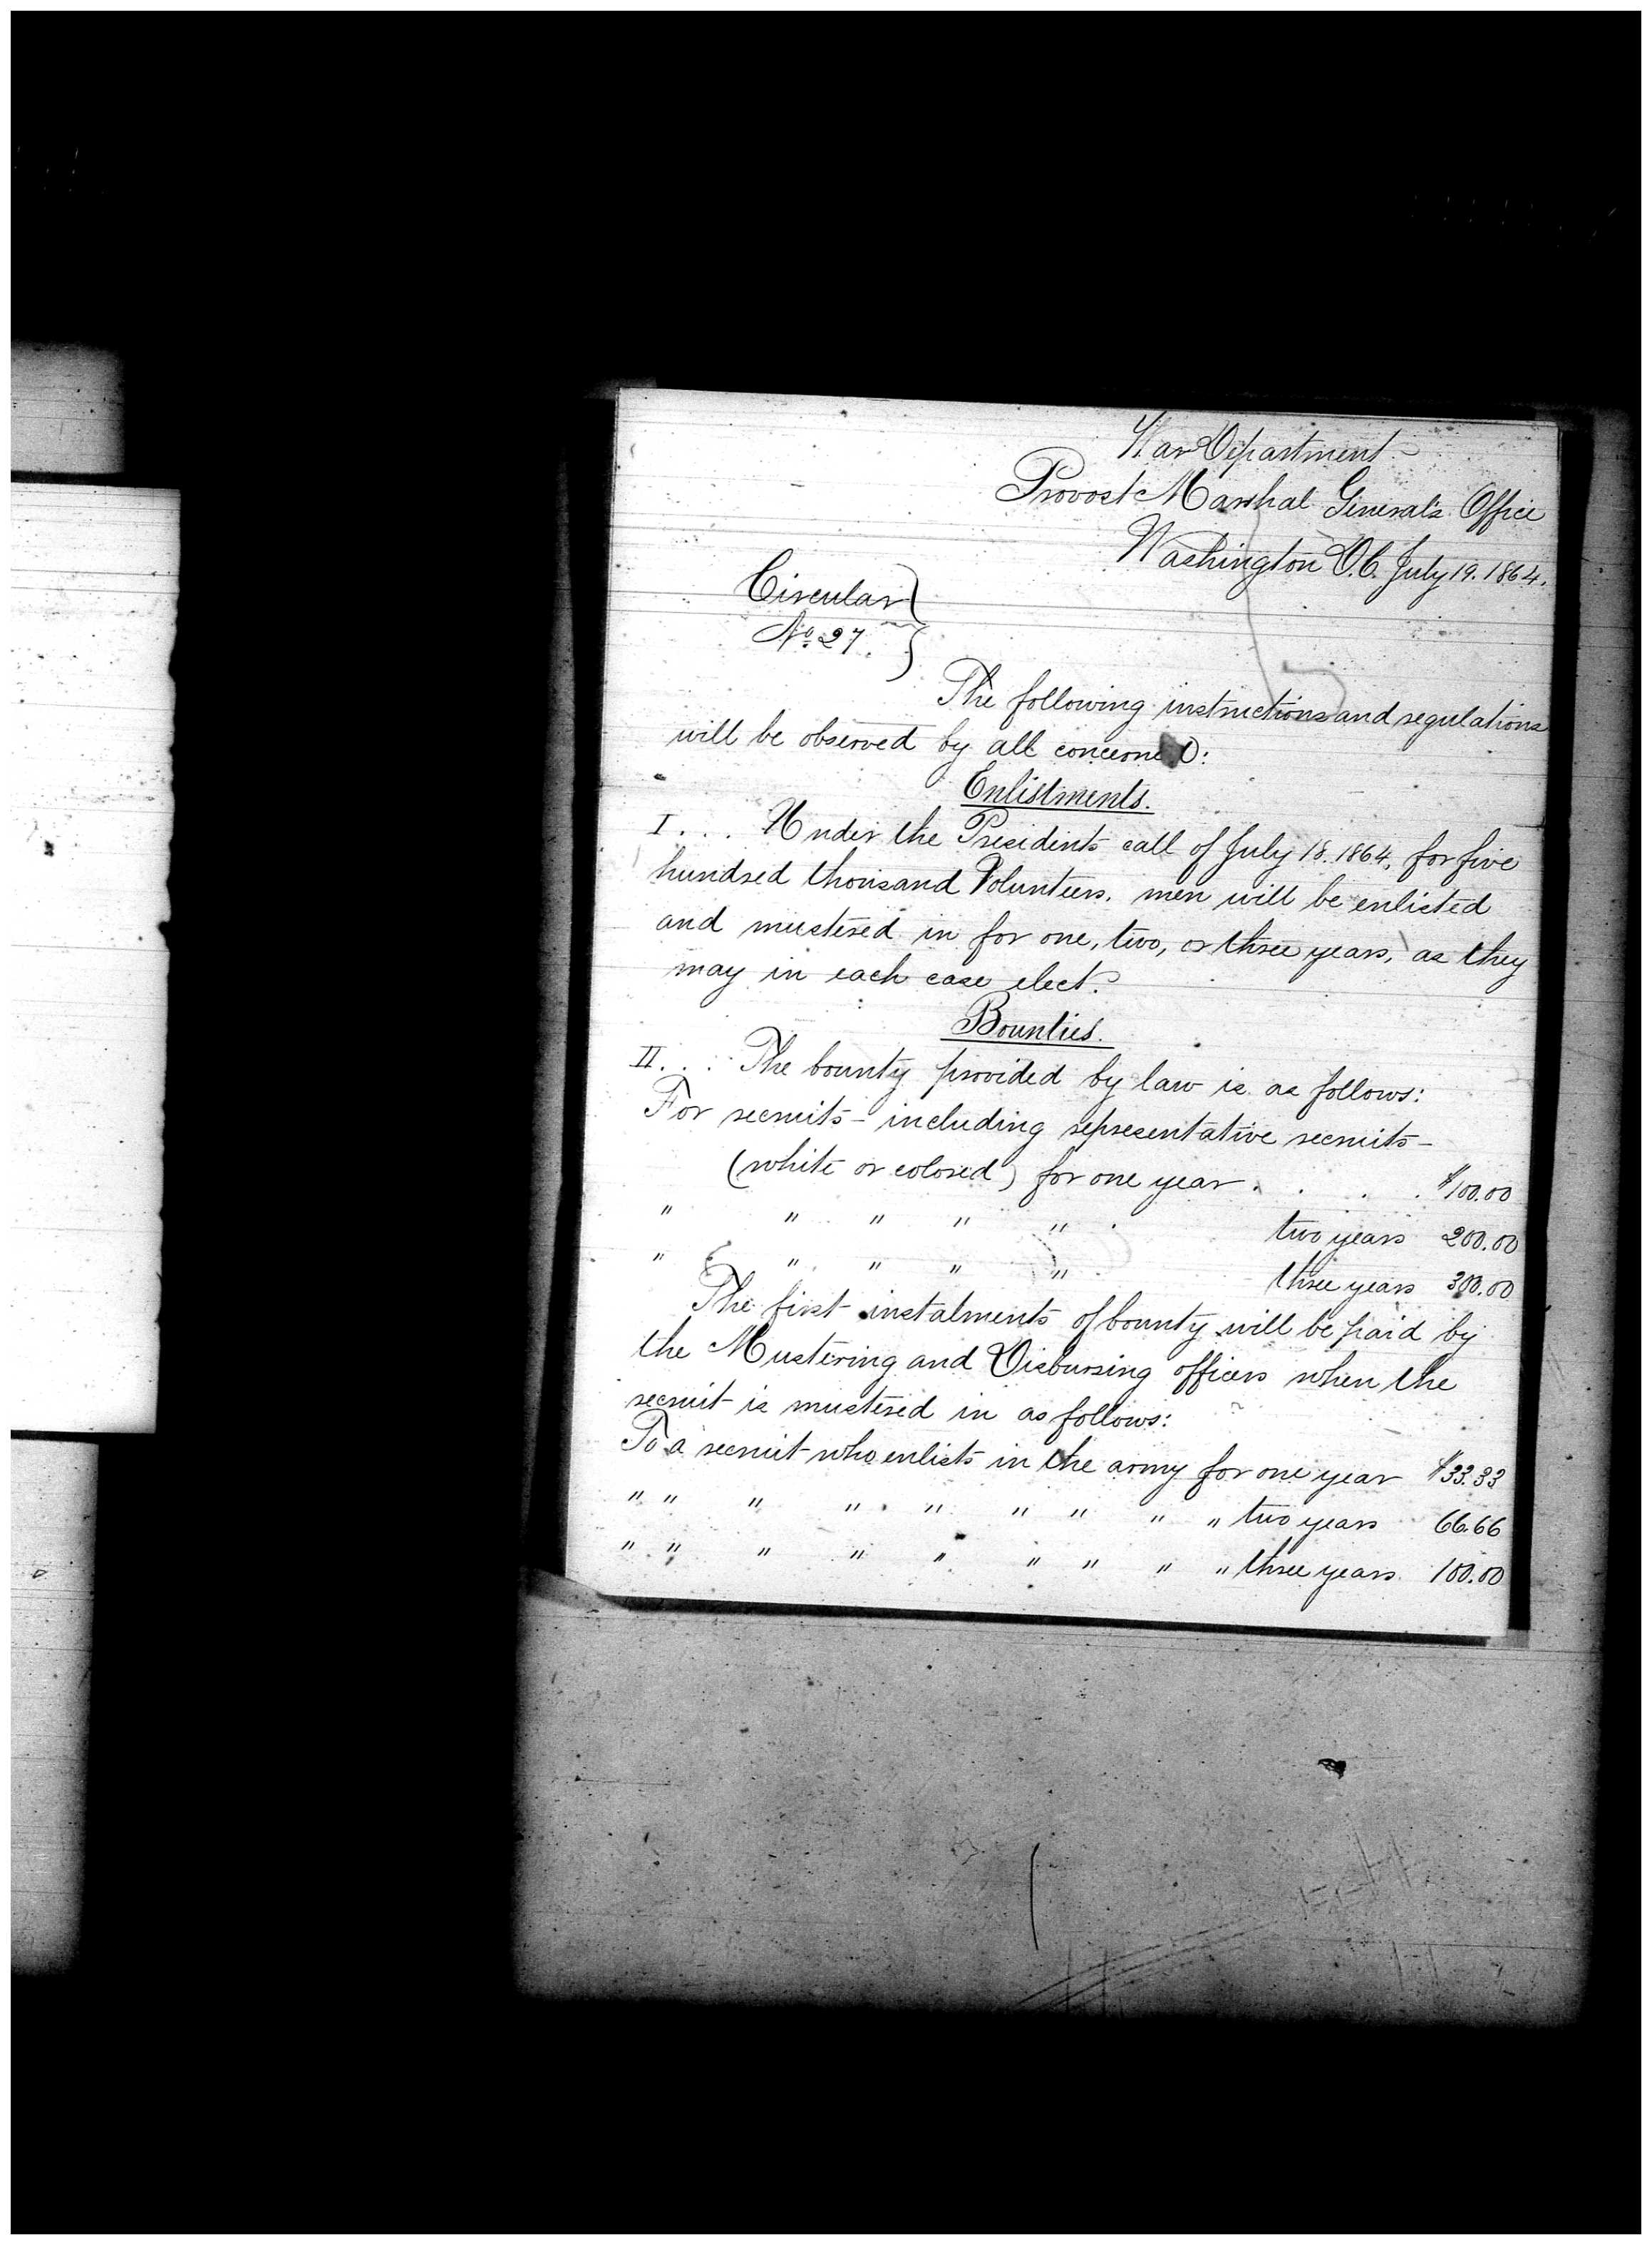 War Department
Provost Marshal General's Office
Washington D.C. July 19. 1864.
Circular
No. 27.
The following instructions and regulations
will be observed by all concerned:
Enlistments.
I . . . Under the Presidents call of July 18. 1864, for five
hundred thousand Volunteers, men will be enlisted
and mustered in for one, two, or three years, as they
may in each case elect.
Bounties.
II . . . The bounty provided by law is as follows:
For recruits - including representative recruits -
(white or colored) for one year . . . . $100.00
" " " " " two years 200.00
" " " " " three years 300.00
The first instalments of bounty will be paid by
the Mustering and Disbursing officers when the
recruit is mustered in as follows:
To a recruit who enlists in the army for one year $33.33
" " " " " " " " " two years 66.66
" " " " " " " " " three years 100.00